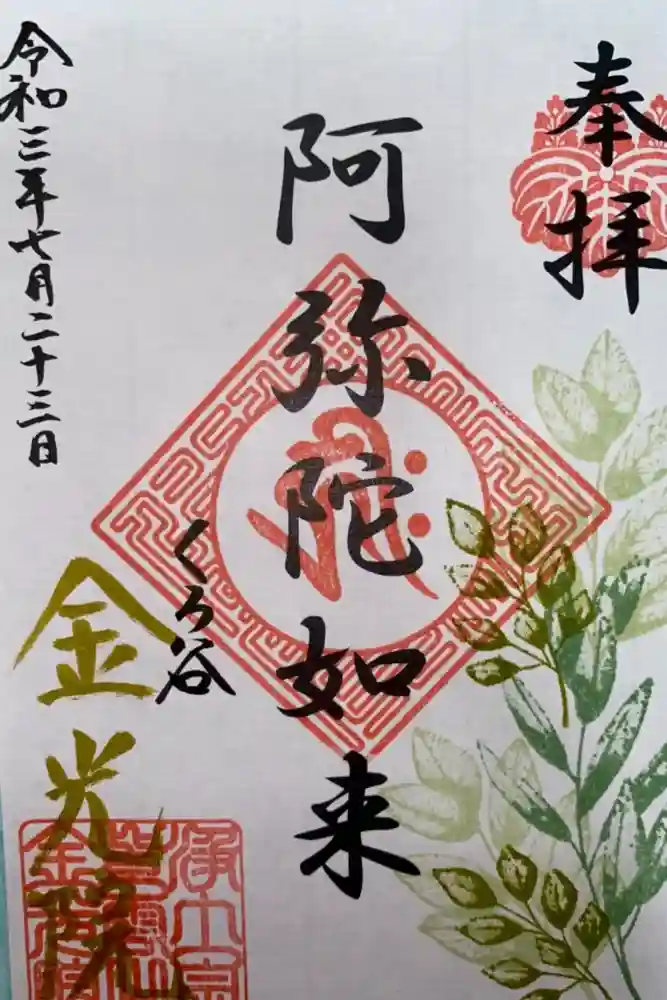 奉拝
阿弥陀如来
くろ谷
金光院
令和三年七月二十三日
浄土宗